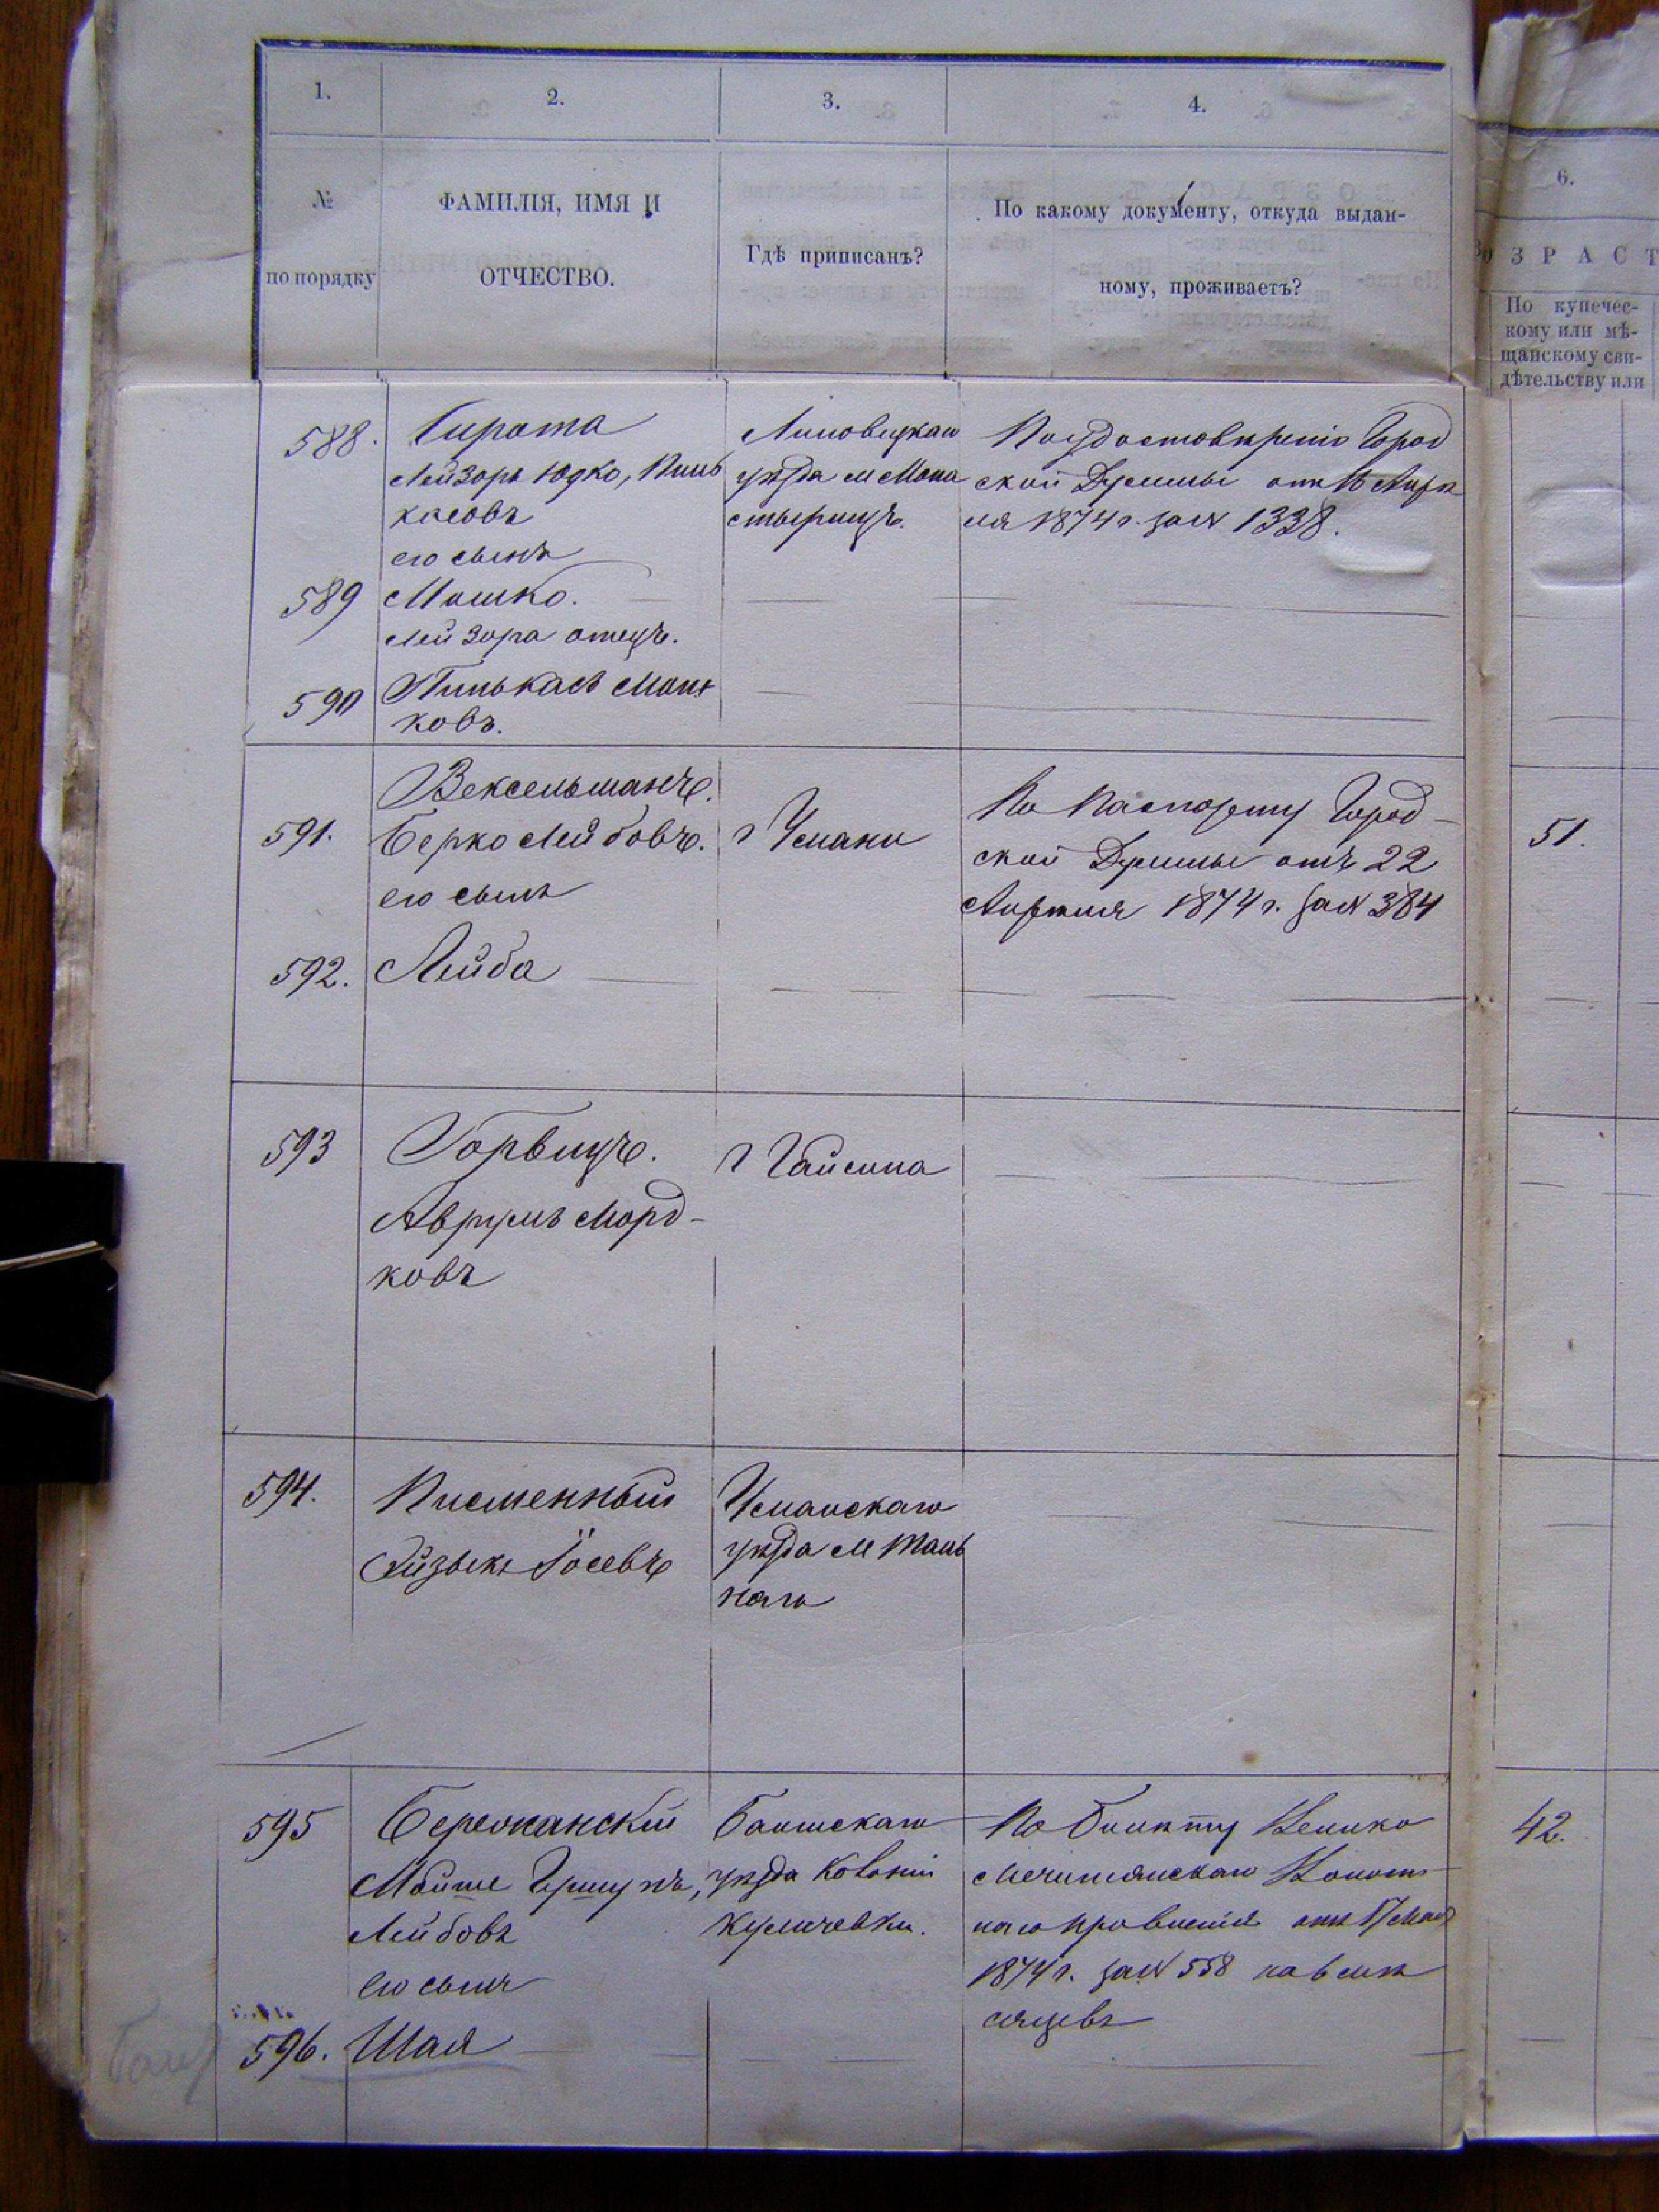 1.
2.
3.
4.
№
по порядку
ФАМИЛІЯ, ИМЯ И
ОТЧЕСТВО.
Гдѣ приписанъ?
По какому документу, откуда выдан-
ному, проживаетъ?
6.
ЗРАСТ
По купечес-
кому или мѣ-
щанскому сви-
дѣтельству или
588.
Сирота
Лейзоръ Юдко, Пинь
касовъ
его сынъ
Липовецкаго
уѣзда м Мона
стырищъ.
По удостовѣренію Город
ской Думы отъ 16 Апрѣ
ля 1874 г. за № 1338.
589
Мошко.
Лейзора отецъ.
590
Пинькасъ Мош
ковъ.
591.
Вексельманъ.
Берко Лейбовъ.
его сынъ
г Умани
По паспорту Город-
ской Думы отъ 22
Апрѣля 1874 г. за № 384
51.
592.
Лейба
593
Горвицъ.
Аврумъ Морд-
ковъ
г Гайсина
594.
Писменный
Айзыкъ Іосевъ
Уманскаго
уѣзда м Таль
наго
595
Бережанскій
Мойше Гершунъ,
Лейбовъ
его сынъ
Балтскаго
уѣзда Колоніи
По билету Велико
отъ 17 Мая
1874 г. за № 558 на 6 мѣ
сяцевъ
42.
596.
Шая